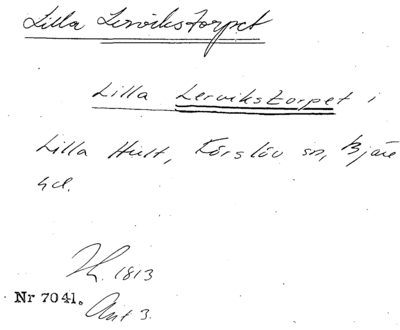 Lilla Lervikstorpet
Lilla Lervikstorpet i
Lilla Hult, Förslöv sn, Bjäre
hd.
1813
Nr 7041. Ant 3.